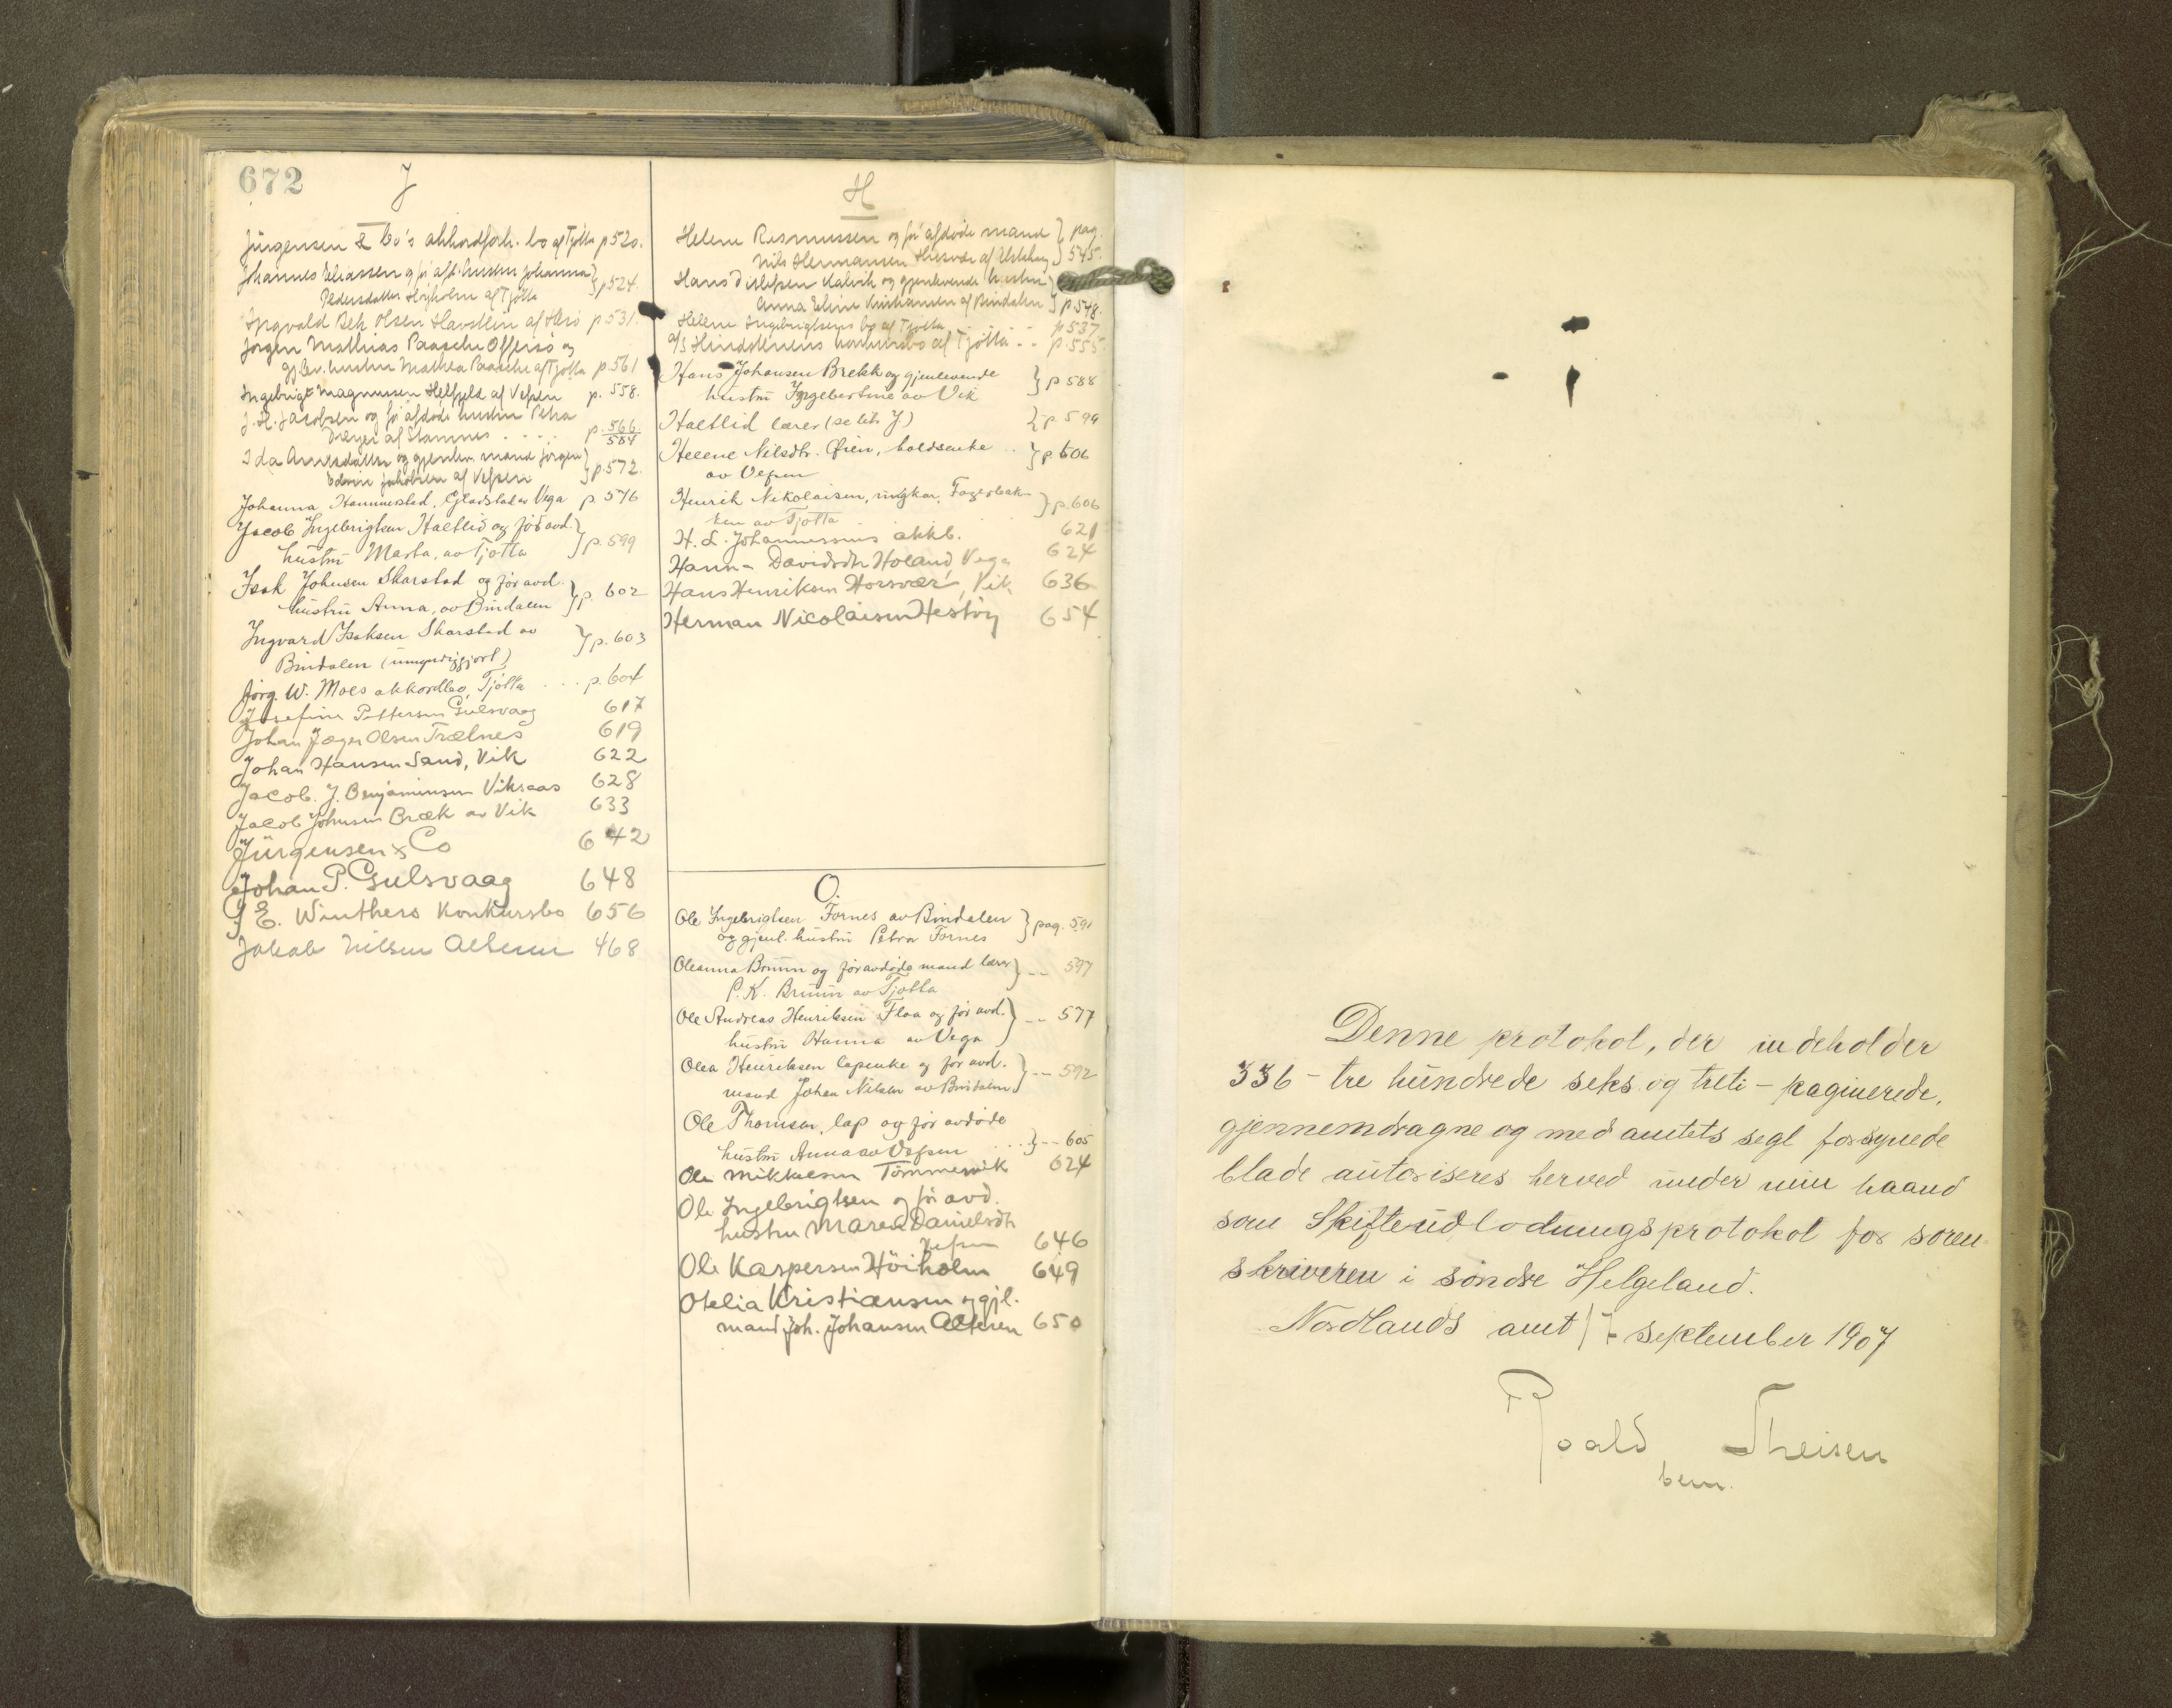 672
J
Jürgensen & Co's akkordforh. bo af Tjøtta p 520.
Johannes Eliassen og før afd. hustru Johanna
Pedersdatter Høyholm af Tjøtta } p 524.
Ingvald Olsen Havstein af Herø p 531.
Jørgen Mathias Paasche Offersø og
gjlev. hustru Mathea Paasche af Tjøtta p. 561
Ingebrigt Magnussen Helfjeld af Vefsen p. 558.
J. H. Jacobsen og før afdøde hustru Petra
Dreyer af Stamnes . . . . p. 566
584
Ida Arnesdatter og gjenlev. mand Jørgen
Edvin Jakobsen af Vefsen } p. 572.
Johanna Hammerstad, Gladstad av Vega p. 576
Jacob Ingebrigtsen Haltlid og før avd.
hustru Marta, av Tjøtta } p. 599
Isak Johnsen Skarstad og før avd.
hustru Anna, av Bindalen } p. 602
Ingvard Isaksen Skarstad av
Bindalen (umyndiggjort) } p. 603
Jørg. W. Moes akkordbo, Tjøtta . . . p. 604
Josefine Pettersen Gulsvaag 617
Johan Jæger Olsen Trælnes 619
Johan Hansen Sand, Vik 622
Jacob. J. Benjaminsen Viksaas 628
Jacob Johnsen Bræk av Vik 633
Jürgensen & Co 642
Johan P. Gulsvaag 648
J E. Winthers Konkursbo 656
Jakob Nilsen Alteren 468
H
Helene Rasmussen og før afdøde mand } pag.
Nils Hermansen af 545.
Hans Ditlefsen Kalvik og gjenlevende hustru
Anna Eline Kristiansen af Bindalen } p. 548.
Helene Ingebrigtsens bo af Tjøtta p 537
A/S Hindstenens konkursbo af Tjøtta - - p. 555
Hans Johansen Brekk og gjenlevende
hustru Ingebertine av Vik } p 588
Haltlid lærer (se litr. J) } p. 599
Helene Nilsdtr. Øien, holdsenke ..
av Vefsen } p. 606
Henrik Nikolaisen, ungkar, Fagerbak-
ken av Tjøtta } p. 606
H. L. Johannessens akkb. 621
Hanna Davidsdtr Holand, Vega 624
Hans Henriksen Horsvær, Vik 636
Herman Nicolaisen Hestøy 654
O.
Ole Ingebrigtsen Fornes av Bindalen
og gjenl. hustru Petra Fornes } pag. 591
Oleanna Bruun og før avdøde mand lærer
P. K. Bruun av Tjøtta } -- 597
Ole Andreas Henriksen Floa og før avd.
hustru Hanna av Vega } -- 577
Olea Henriksen lapenke og før avd.
mand Johan Nilsen av Bindalen } -- 592
Ole Thomsen, lap og før avdøde
hustru Anna av Vefsen . . . } -- 605
Ole Mikkelsen Tømmervik 624
Ole Ingebrigtsen og før avd.
hustru Maren Danielsdtr
Vefsen 646
Ole Kaspersen Höiholm 649
Otelia Kristiansen og gjl.
mand Joh. Johansen Alteren 650
Denne protokol, der indeholder
336 - tre hundrede seks og treti - paginerede,
gjennemdragne og med amtets segl forsynede
blade autoriseres herved under min haand
som Skifteudlodningsprotokol for soren-
skriveren i søndre Helgeland.
Nordlands amt 17 september 1907
Roald Theisen
bem.